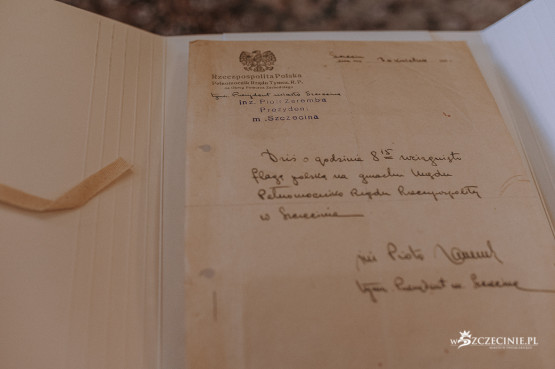 Rzeczpospolita Polska
Pełnomocnik Rządu Tymcz. R.P.
na Okręg Pomorza Zachodniego
tym. Prezydent miasta Szczecina
inż. Piotr Zaremba
Prezydent
m. Szczecina
Dziś o godzinie 8 15 wciągnięto
flagę polską na gmachu Urzędu
Pełnomocnika Rządu Rzeczypospolitej
w Szczecinie
inż Piotr Zaremba
tym. Prezydent m. Szczecina
wSZCZECINIE.PL